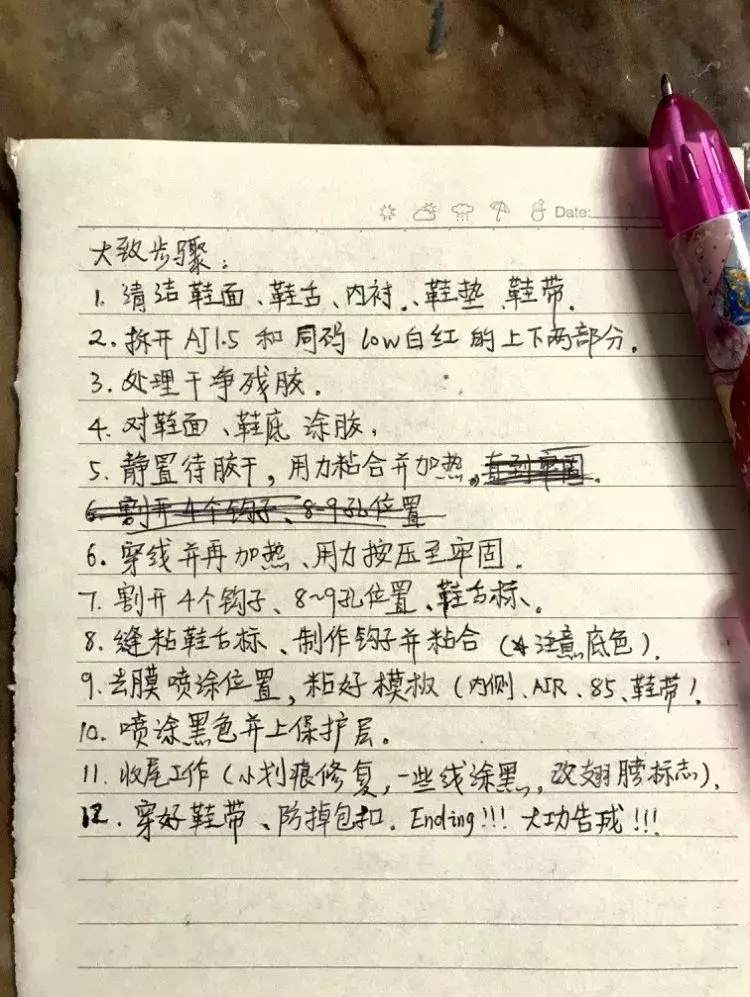 Date:
大致步骤:
1. 清洁鞋面、鞋舌、内衬、鞋垫 鞋带.
2. 拆开 AJ1.5 和 同码 low白红 的上下两部分.
3. 处理干净残胶.
4. 对鞋面、鞋底 涂胶,
5. 静置待胶干, 用力粘合并加热。直到牢固.
6. 割开4个钩子、8-9孔位置
6. 穿线并再加热、用力按压至牢固.
7. 割开4个钩子、8~9孔位置、鞋舌标、。
8. 缝粘鞋舌标、制作钩子并粘合 (*注意底色).
9. 去膜喷涂位置, 粘好模板 (内侧、AIR、85、鞋带).
10. 喷涂黑色并上保护层。
11. 收尾工作 (小划痕修复, 一些线涂黑, 改翅膀标志).
12. 穿好鞋带、防掉包扣. Ending!!! 大功告成!!!